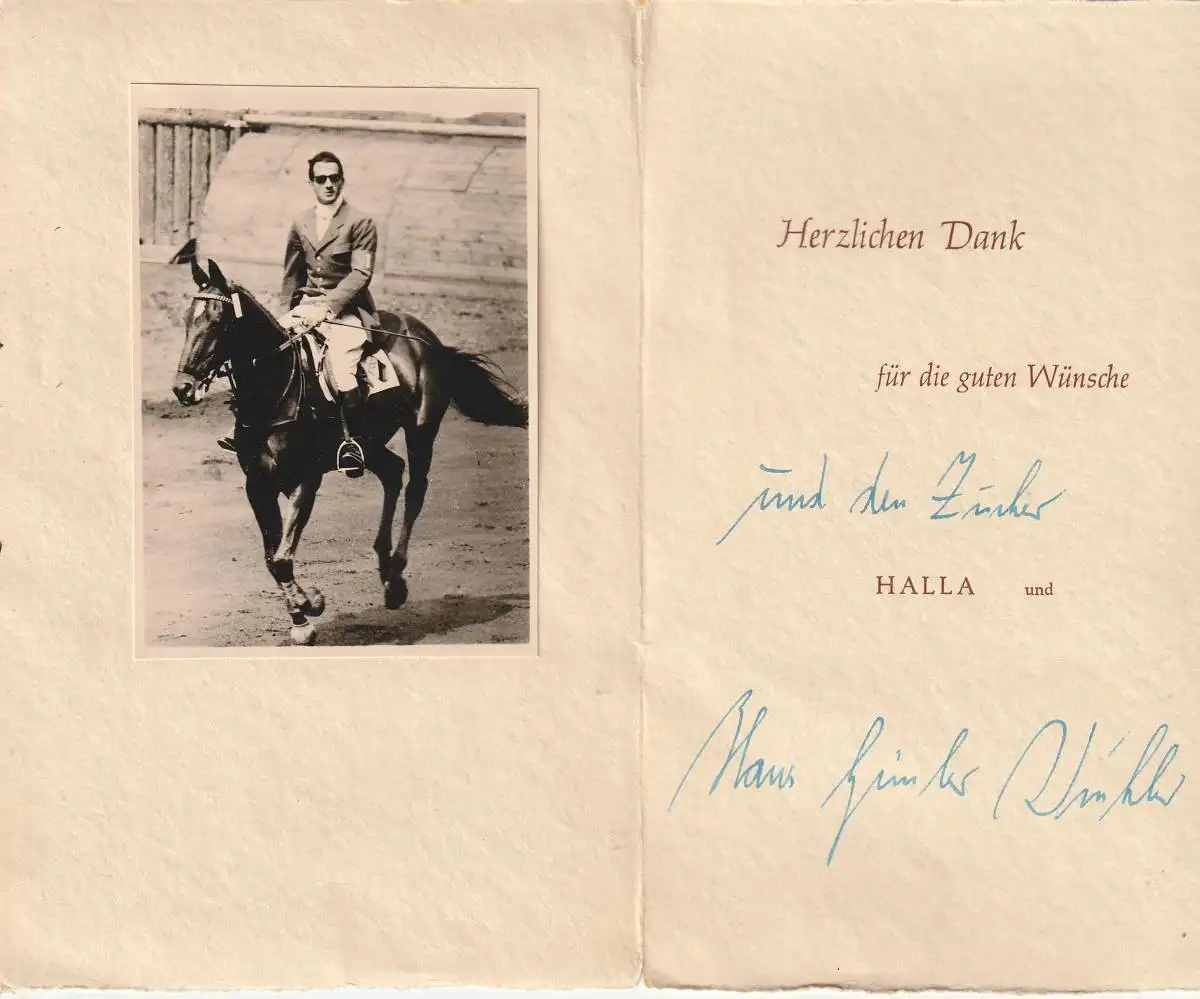 Herzlichen Dank
für die guten Wünsche
und den Zucker
HALLA und
Hans Günter Winkler